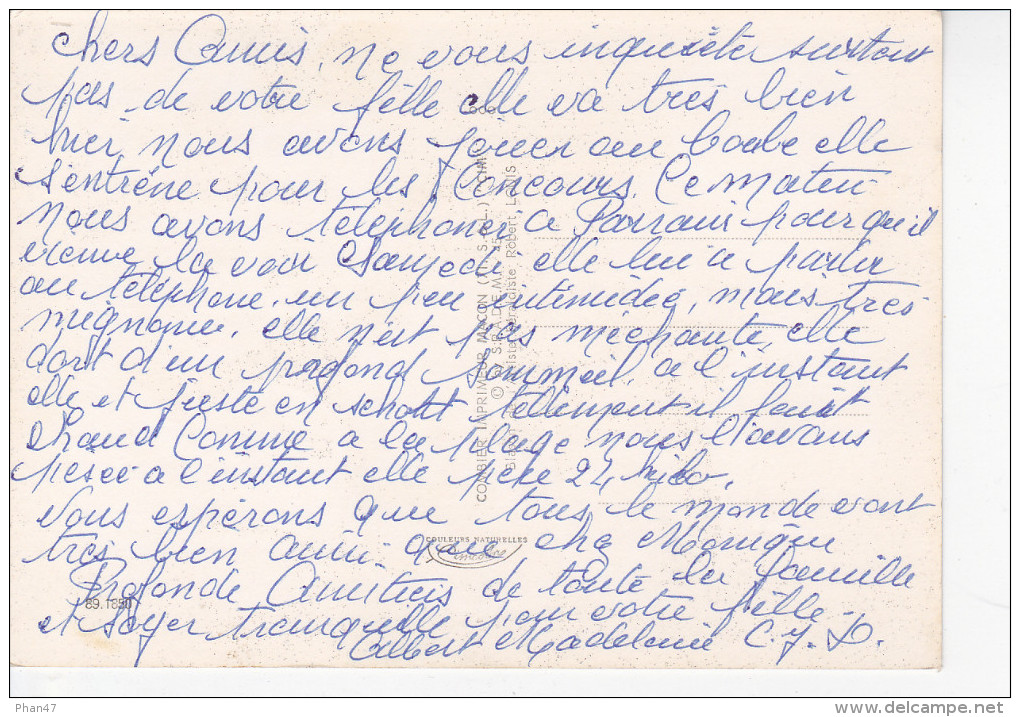 chers Amis, ne vous inquiéter surtout
pas de votre fille elle va très bien
hier nous avons jouer au boule elle
s'entrène pour les Concours. Ce matin
nous avons téléphoner a Parrain pour qu'il
vienne la voir Samedi, elle lui a parler
au téléphone, un peu intimidée, mais très
mignonne, elle n'est pas méchante, elle
dort d'un profond sommeil, a l'instant
elle et juste en schort tellement il fait
chaud Comme a la plage nous l'avons
pesée a l'instant elle pèse 24 kilo.
Nous espérons que tous le monde vont
très bien ainsi que chez Monique
Profonde Amitiés de toute la famille
et soyer tranquille pour votre fille.
Albert Madeleine C. J. D.
COMBIER IMPRIMEUR MACON
COULEURS NATURELLES
89.1850
Phan47
delcampe.net